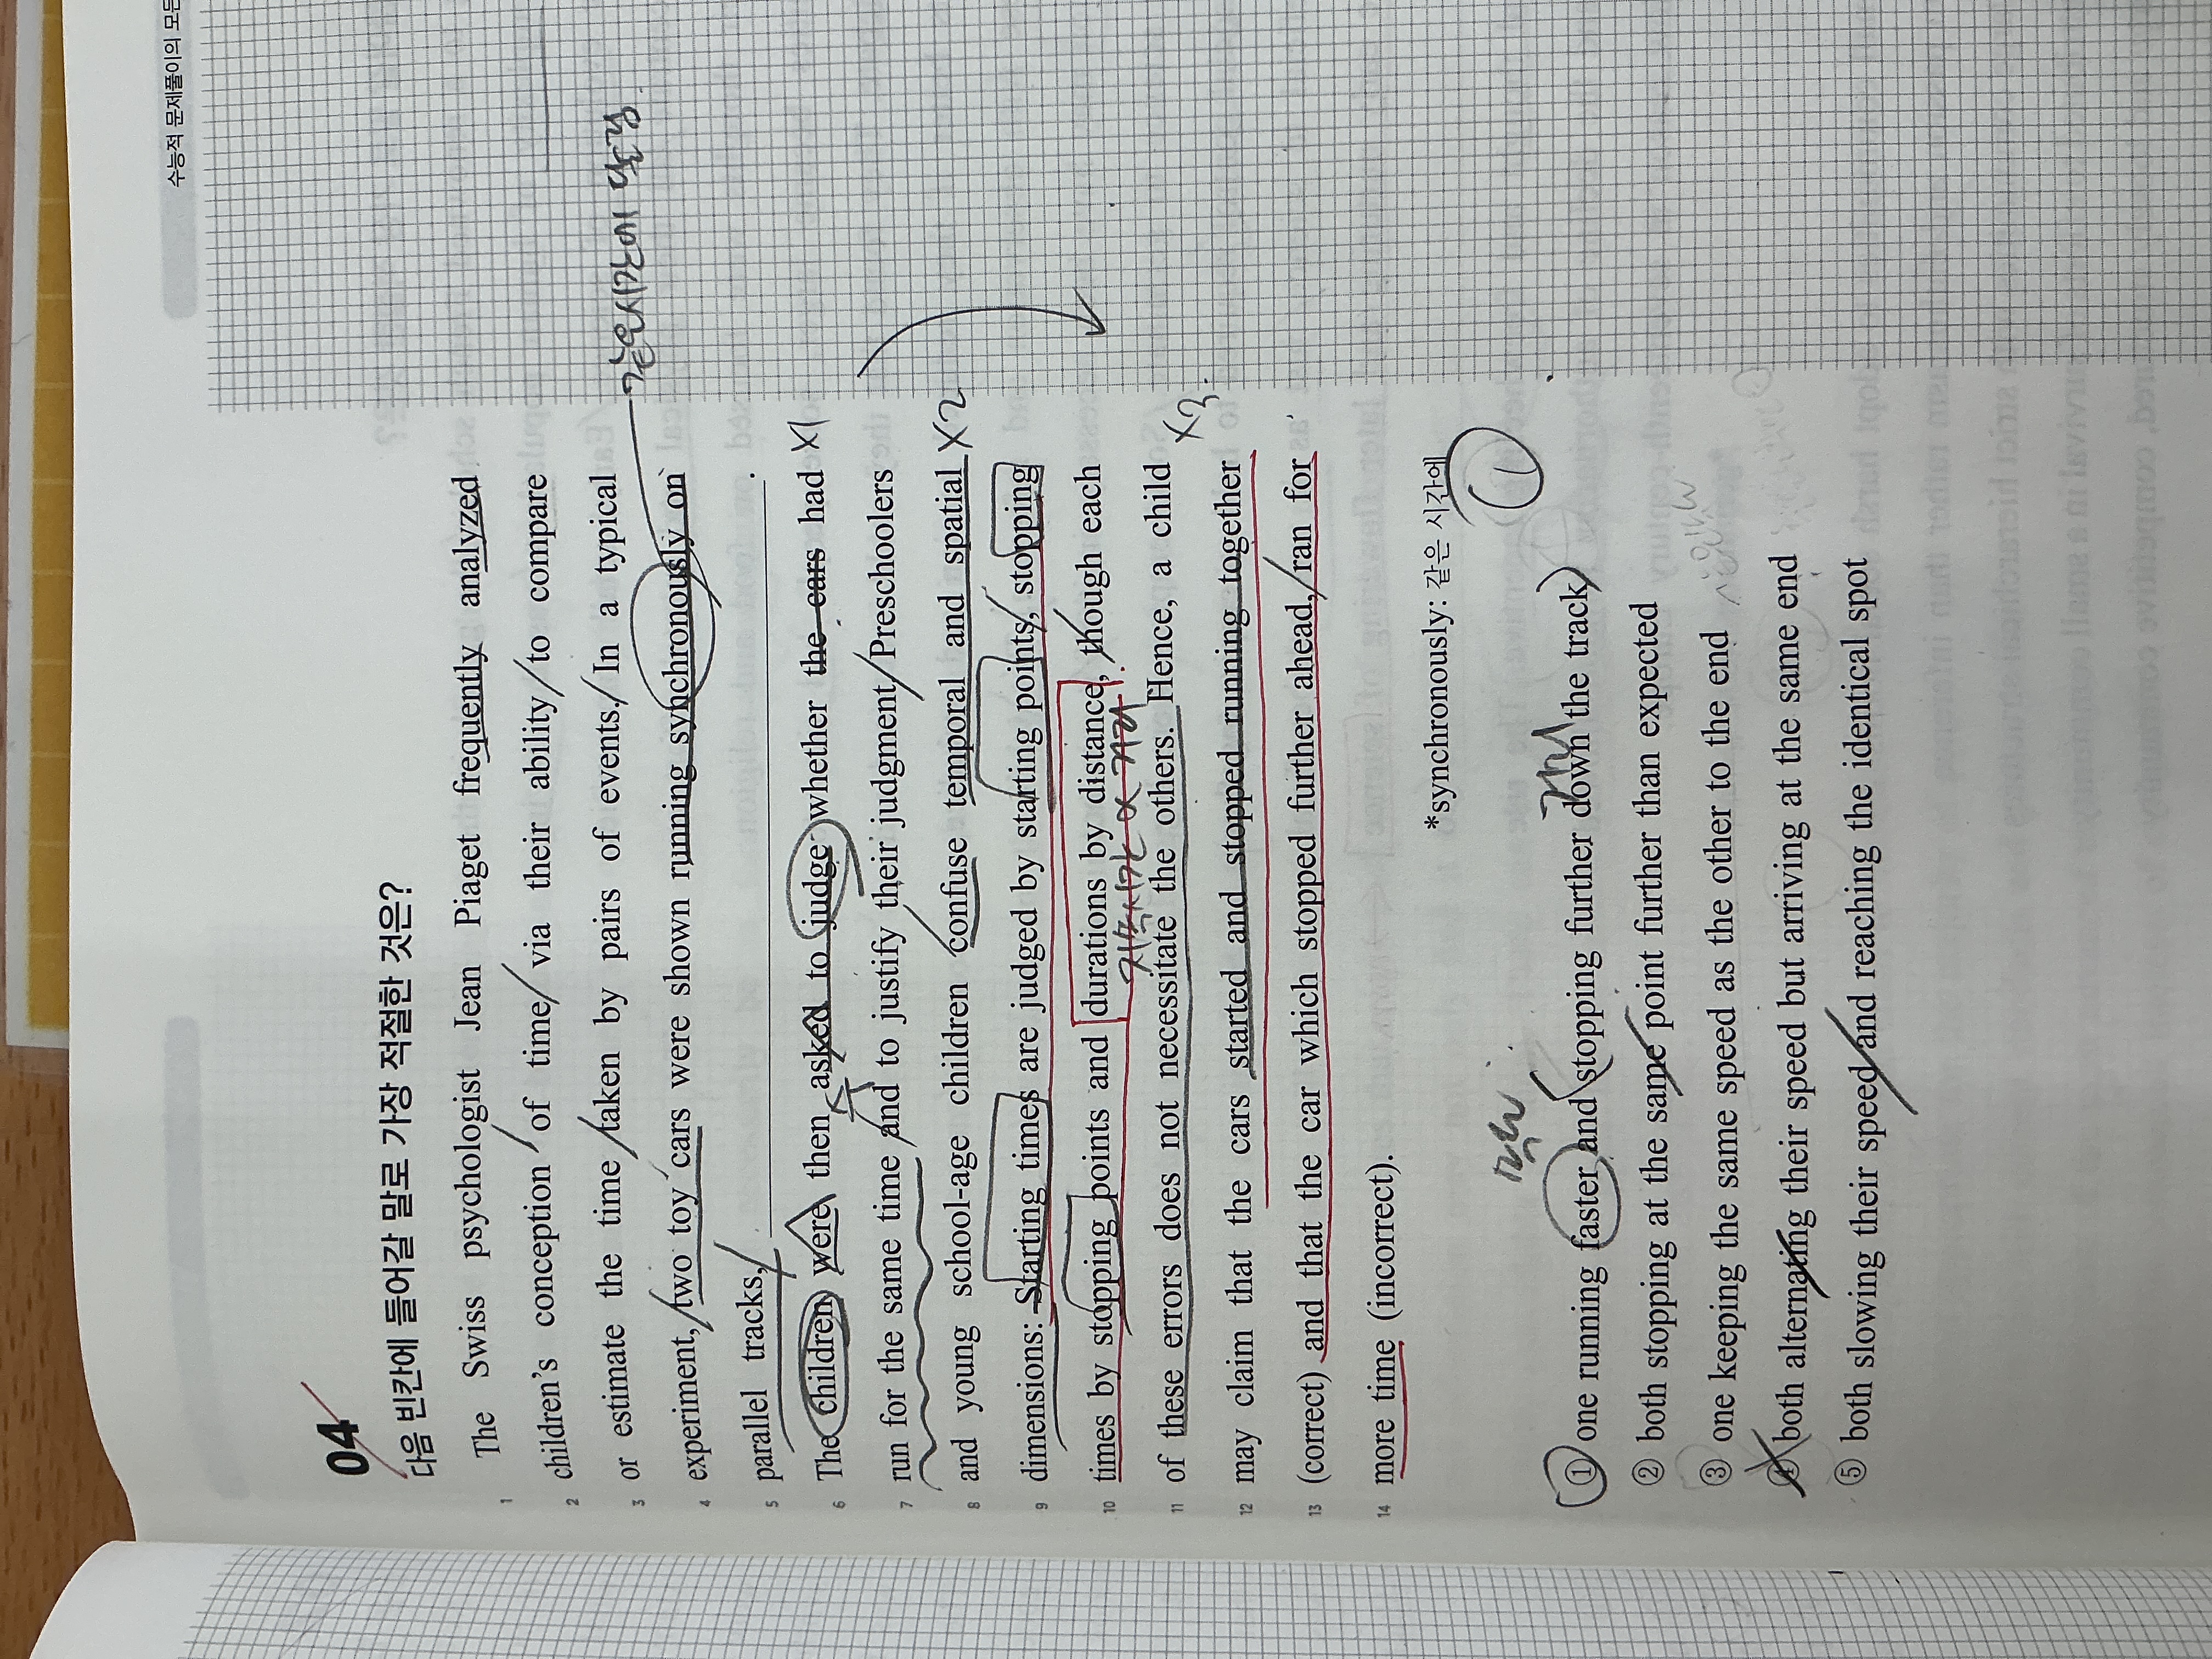 수능적 문제풀이의 모든
04
다음 빈칸에 들어갈 말로 가장 적절한 것은?
1 The Swiss psychologist Jean Piaget frequently analyzed
2 children's conception of time via their ability to compare
3 or estimate the time taken by pairs of events. In a typical
4 experiment, two toy cars were shown running synchronously on
같은시간에
5 parallel tracks, ______.
6 The children were then asked to judge whether the cars had X1
7 run for the same time and to justify their judgment. Preschoolers
8 and young school-age children confuse temporal and spatial X2
9 dimensions: Starting times are judged by starting points, stopping
10 times by stopping points and durations by distance, though each
지속시간 거리
11 of these errors does not necessitate the others. Hence, a child X3
12 may claim that the cars started and stopped running together
13 (correct) and that the car which stopped further ahead, ran for
14 more time (incorrect).
*synchronously: 같은 시간에
①
① one running faster and stopping further down the track
② both stopping at the same point further than expected
③ one keeping the same speed as the other to the end
④ both alternating their speed but arriving at the same end
⑤ both slowing their speed and reaching the identical spot